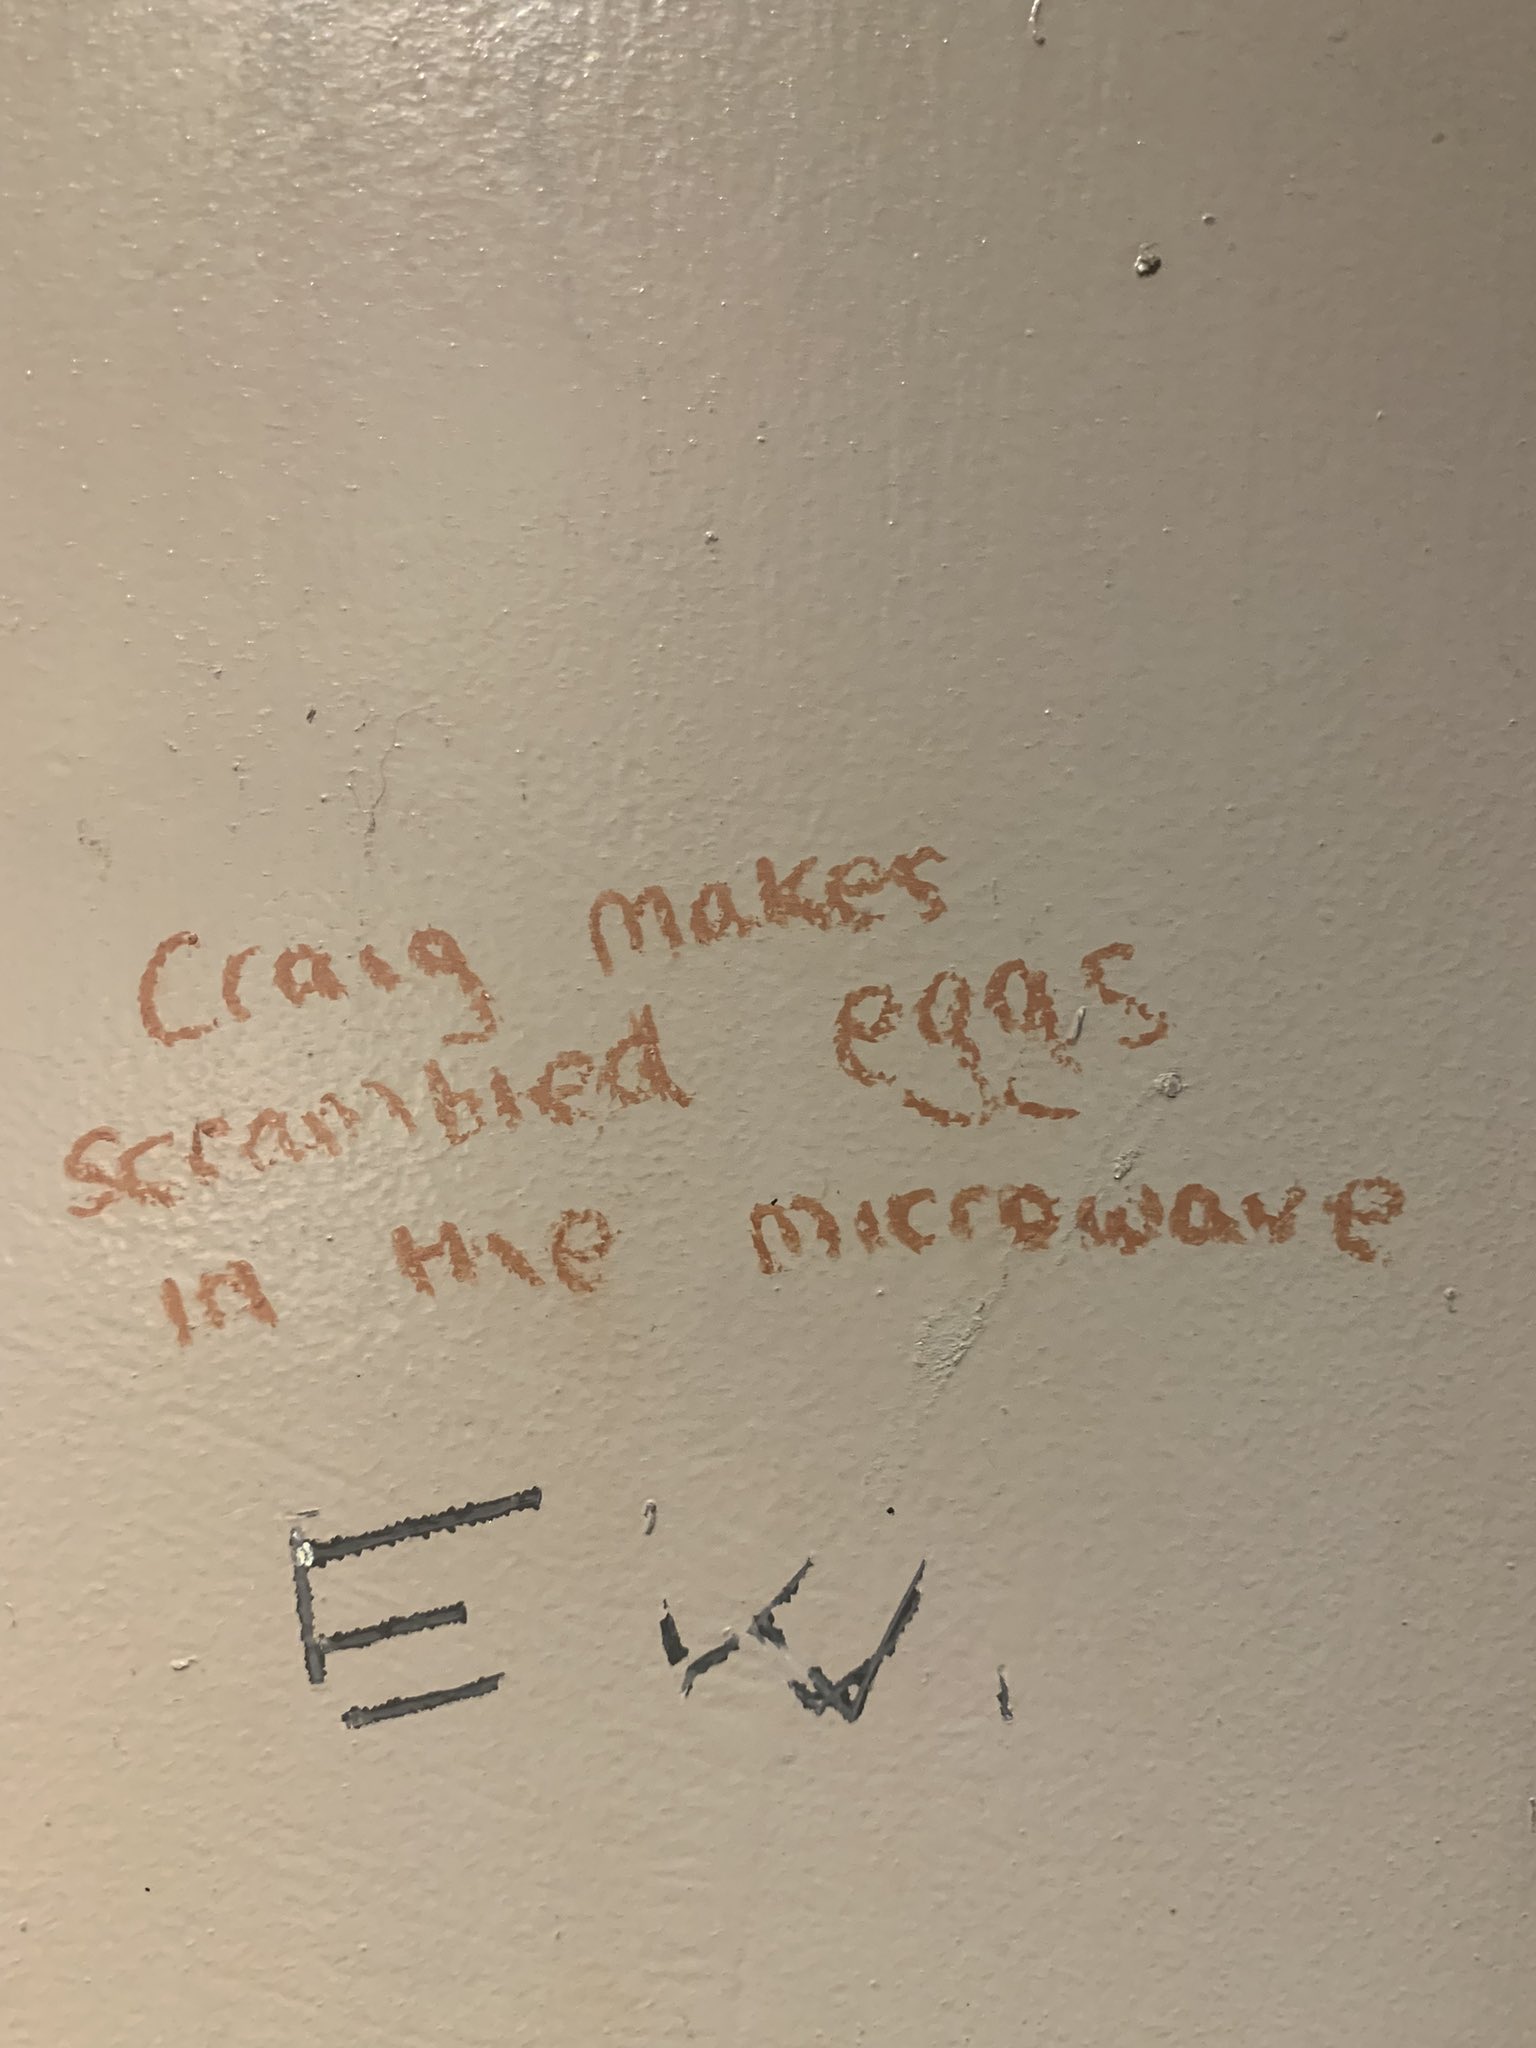 Craig makes
scrambled eggs
in the microwave
Ew.